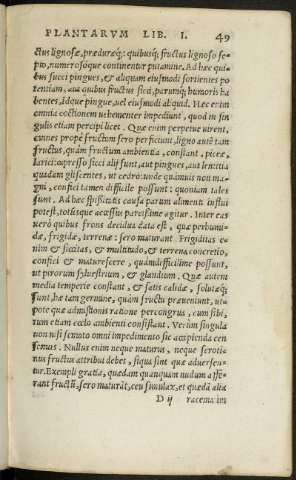 PLANTARVM LIB. I. 49
ctus lignosæ, prædurǽq; quibusq; fructus lignoso se-
pto, numerosóque continentur putamine. Ad hæc qui-
bus succi pingues, & aliquam eiusmodi sortientes po
tentiam, aut quibus fructus sicci, parumq; humoris ha
bentes, idque pingue, uel eiusmodi aliquid. Hæc enim
omnia coctionem uehementer impediunt, quod in sin
gulis etiam percipi licet. Quæ enim perpetuo uirent,
omnes propè fructum sero perficiunt, ligno autē tam
fructus, quàm fructum ambientia, constant, piceæ,
larici: cupresso sicci aliſ sunt, aut pingues, aut lentitia
quadam gliscentes, ut cedro: unde quamuis non ma-
gni, confici tamen difficile possunt: quoniam tales
sunt. Ad hæc spissitatis causa parum alimenti influi
potest, totúsque accessus parcissime agitur. Inter eas
uerò quibus frons decidua data est, quæ perhumi-
dæ, frigidæ, terrenæ: sero maturant. Frigiditas e-
nim & siccitas, & multitudo, & terrena concretio,
confici & maturescere, quàm difficillime possunt,
ut pirorum syluestrium, & glandium. Quæ autem
media temperie constant, & satis calidæ, solutǽq;
sunt, hæ tam germine, quàm fructu præueniunt, ut-
pote quæ admistionis ratione percongrus, cum sibi,
tum etiam cœlo ambienti consistant. Verùm singula
non nisi semoto omni impedimento sic accipienda cen
semus. Nullus enim neque maturus, neque seroti-
nus fructus attribui debet, siqua sint quæ aduersen-
tur. Exempli gratia, quædam quanquam nudum asse-
rant fructū, sero maturāt, ceu smilax, et quædā aliæ
D ij racemæ im